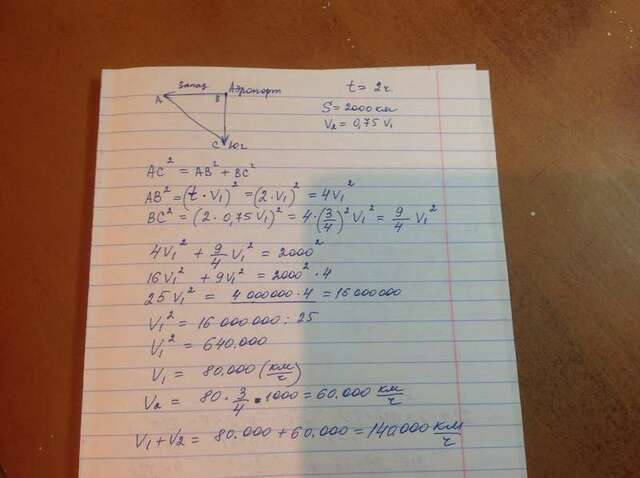 Запад
A B Аэропорт
C Юг
t = 2ч.
S = 2000 км
V₂ = 0,75 V₁
AC² = AB² + BC²
AB² = (t · V₁)² = (2 · V₁)² = 4V₁²
BC² = (2 · 0,75 V₁)² = 4 · (3/4)² V₁² = 9/4 V₁²
4V₁² + 9/4 V₁² = 2000²
16V₁² + 9V₁² = 2000² · 4
25 V₁² = 4 000000 · 4 = 16 000000
V₁² = 16 000 000 : 25
V₁² = 640.000
V₁ = 80.000 (км/ч)
V₂ = 80 · 3/4 · 1000 = 60.000 км/ч
V₁ + V₂ = 80.000 + 60.000 = 140.000 км/ч